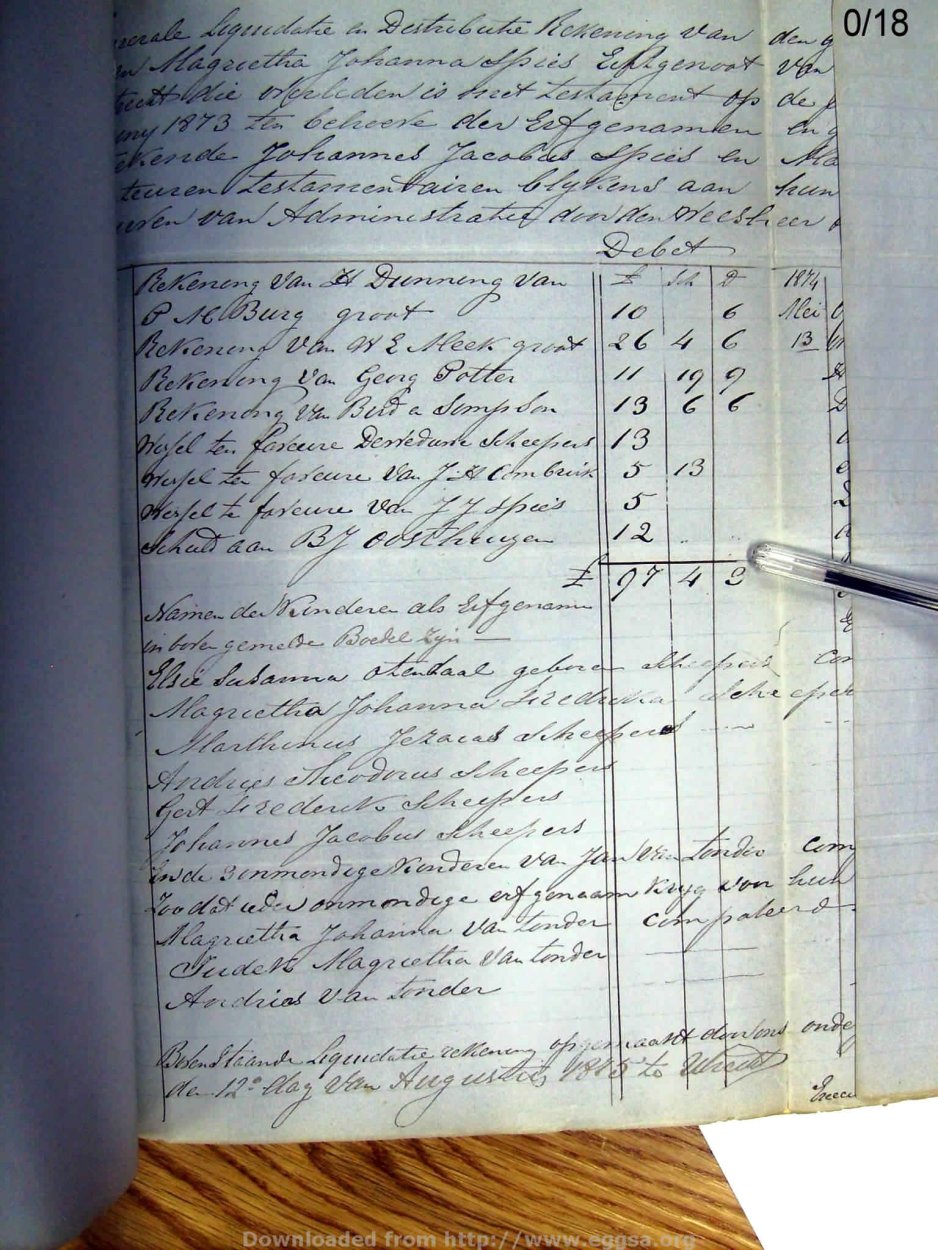 0/18
nerale Liquidatie en Distributie Rekening van den g
en Magrietha Johanna Spies Echtgenoot van
trecht die overleden is met Testament op de
1873 ten behoeve der Erfgenamen en
tekende Johannes Jacobus Spies en Ma
teuren Testamentairen blykens aan hun
van Administratie door den Weesheer
Debet
Rekening van H Dunning van £ Sh D 1874
P M Burg groot 10 6 Mei
Rekening van W E Meek groot 26 4 6 13
Rekening van Georg Potter 11 19 9
Rekening van Bird a Simpson 13 6 6
Wessel ten faveure Scheepers 13
Wessel ten faveure van J H Combrink 5 13
Wessel te faveure van J J Spies 5
Schuld aan B J Oosthuyzen 12 " "
£ 97 4 3
Namen der Kinderen als Erfgename
in boven gemelde Boedel zyn —
Elsie Susanna otendaal geboren Scheepers
Magrietha Johanna Fredrika Scheeper
Marthinus Jezaias Scheepers
Andries Theodorus Scheepers
Gert Frederik Scheepers
Johannes Jacobus Scheepers
En de 3 onmondige Kinderen van Jan van Tonder com
Zoo dat ieder onmondige erfgenaam kryg voor hun
Magrietha Johanna van Tonder
Judek Magrietha van Tonder
Andries van Tonder
Bovenstaande Liquidatie rekening opgemaakt door ons onde
den 12e dag van Augustus 1875 te Utrecht
Execu
Downloaded from http://www.eggsa.org